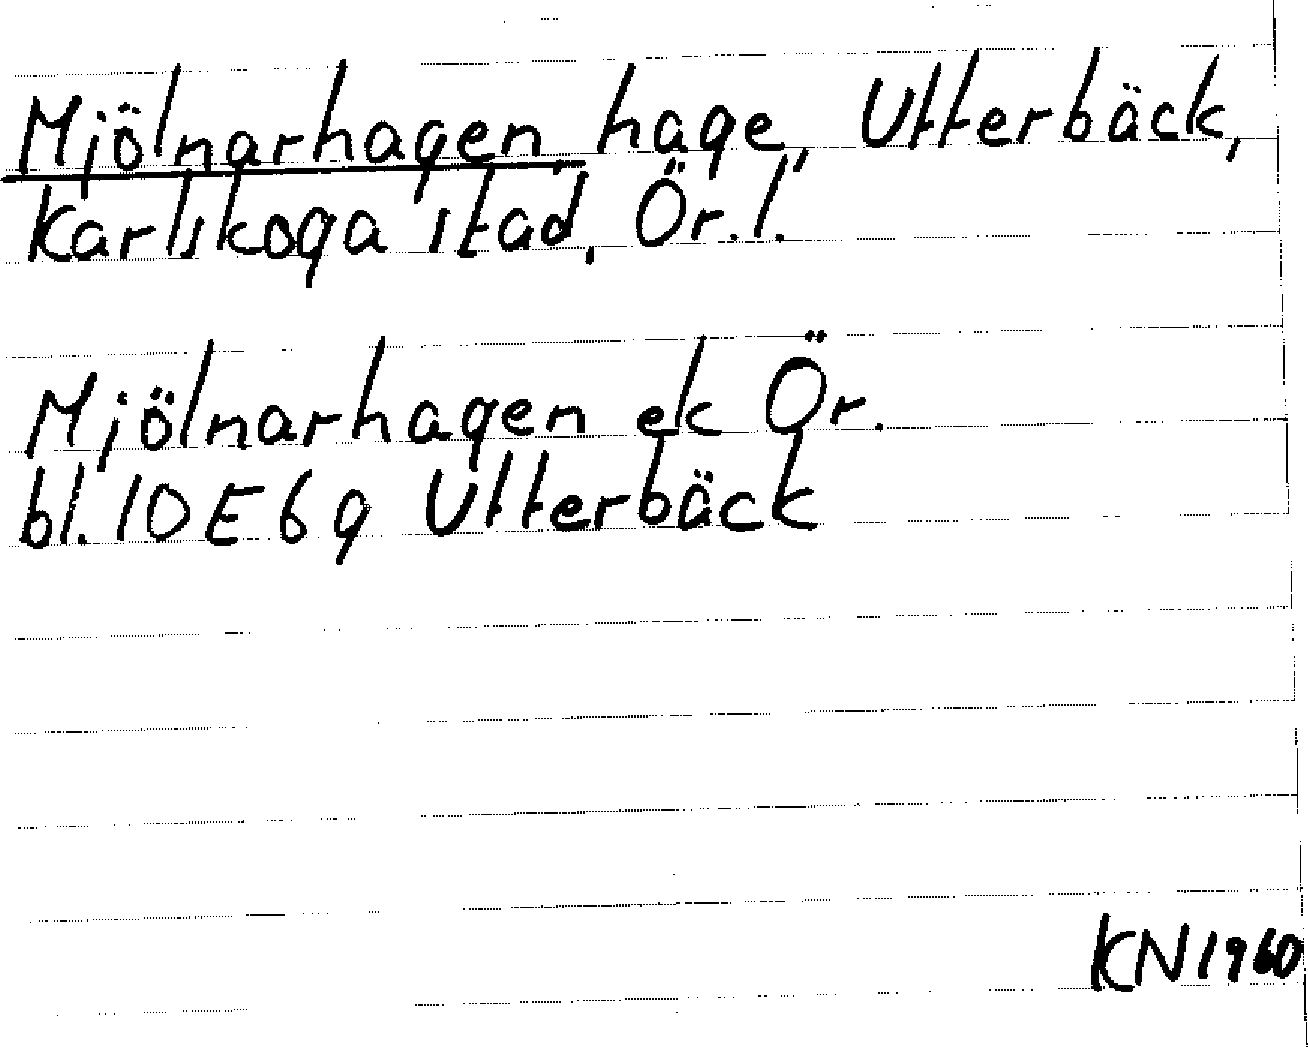 Mjölnarhagen, hage, Utterbäck,
Karlskoga stad, Ör.l.
Mjölnarhagen ek Ör.
bl. 10E6g Utterbäck
KN1960